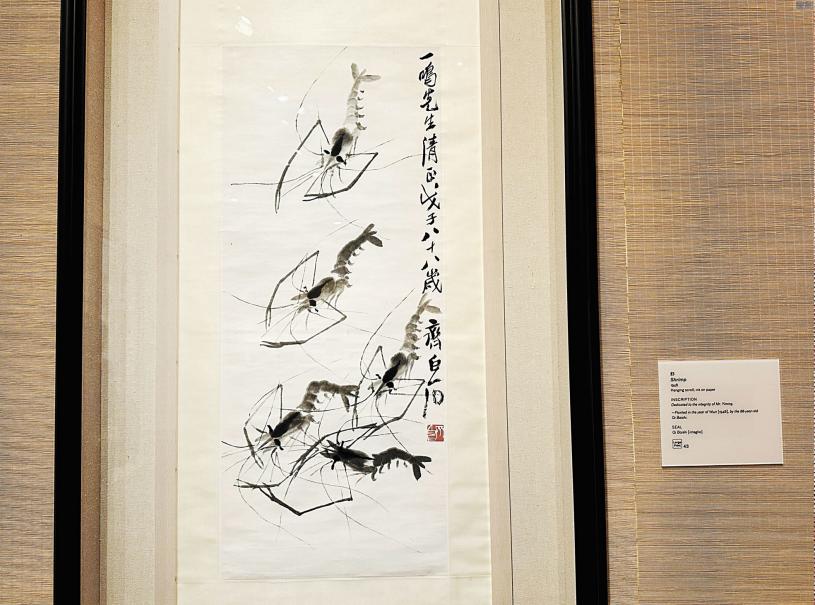 一鳴先生清正戊子八十八歲 齊白石
Shrimp
1948
Hanging scroll, ink on paper
INSCRIPTION
Dedicated to the integrity of Mr. Yiming.
by the 88-year-old
Qi Baishi.
SEAL
Qi Baishi [intaglio]
43